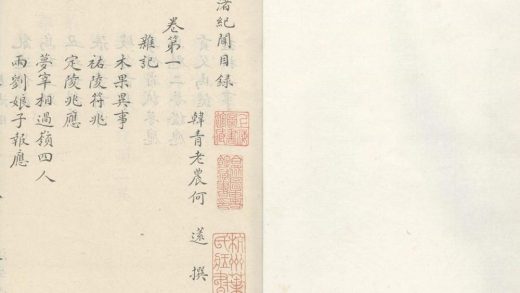 渚紀聞目録
韓青老農何 薳 撰
卷第一
雜記
木果異事
祐陵符兆
定陵兆應
夢宰相過嶺四人
兩劉娘子報應